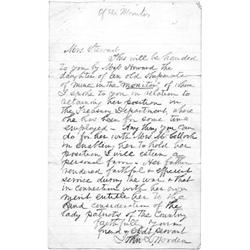 of the Monitor
Mrs. Stewart
This will be handed
to you by Miss Howard the
daughter of an old Shipmate
of mine in the Monitor of whom
I spoke to you in relation to
retaining her position in
the Treasury Department, where
she has been for some time
employed - Any thing you can
do for her with Mrs.
enabling her to hold her
position, I will esteem a
personal favor - Her father
rendered faithful & efficient
service during the war, & that
in connection with her own
merit entitle her to the
kind consideration of the
lady patriots of the Country
Faithfully
friend & Obdt Servant
John L Worden